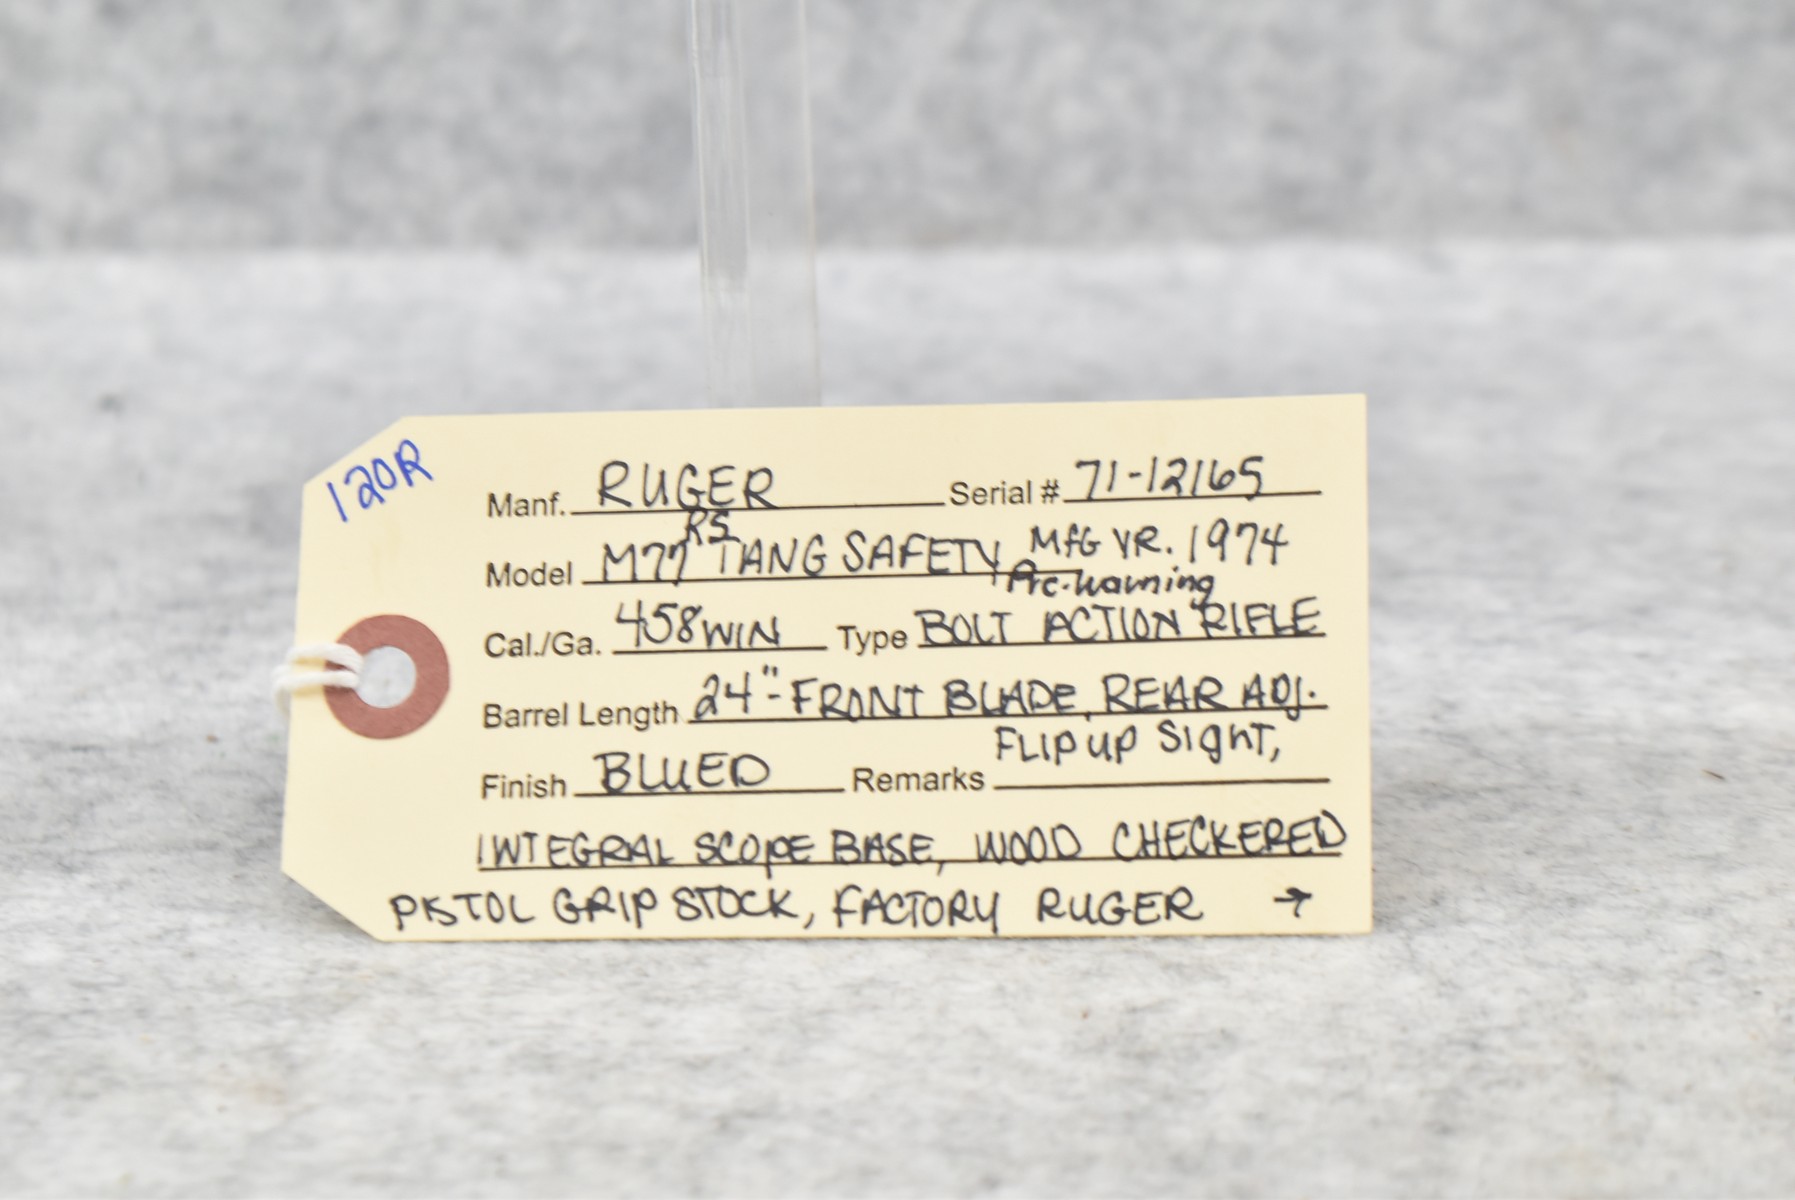 120R
Manf. RUGER Serial # 71-12165
RS
Model M77 TANG SAFETY MfG YR. 1974
Pre-Warning
Cal./Ga. 458 WIN Type BOLT ACTION RIFLE
Barrel Length 24"- FRONT BLADE, REAR ADJ.
FLIP UP SIGHT,
Finish BLUED Remarks
INTEGRAL SCOPE BASE, WOOD CHECKERED
PISTOL GRIP STOCK, FACTORY RUGER →